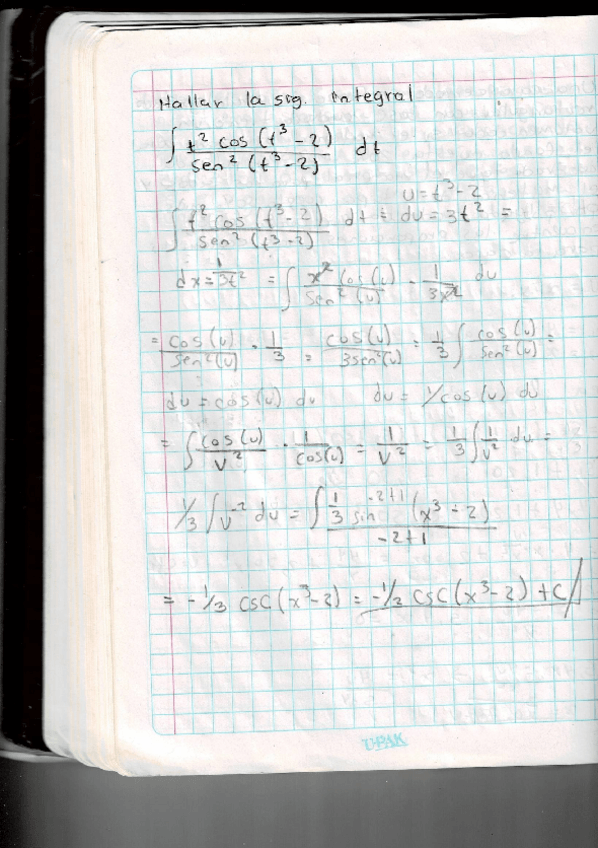 Hallar la sig. integral
∫ t² cos (t³ - 2) / sen² (t³ - 2) dt
u = t³ - 2
∫ t² cos (t³ - 2) / sen² (t³ - 2) dt = du = 3t² =
dx = 1/3t² = ∫ x² cos (u) / sen² (u) · 1/3x² du
= cos (u) / sen² (u) · 1/3 = cos (u) / 3sen² (u) = 1/3 ∫ cos (u) / sen² (u) =
du = cos (u) du du = 1/cos (u) du
= ∫ cos (u) / v² · 1/cos(u) = 1/v² = 1/3 ∫ 1/v² du =
1/3 ∫ v⁻² du = ∫ 1/3 sin⁻²⁺¹ (x³ - 2) / -2+1
= - 1/3 csc (x³ - 2) = - 1/2 csc (x³ - 2) + c
UPAK